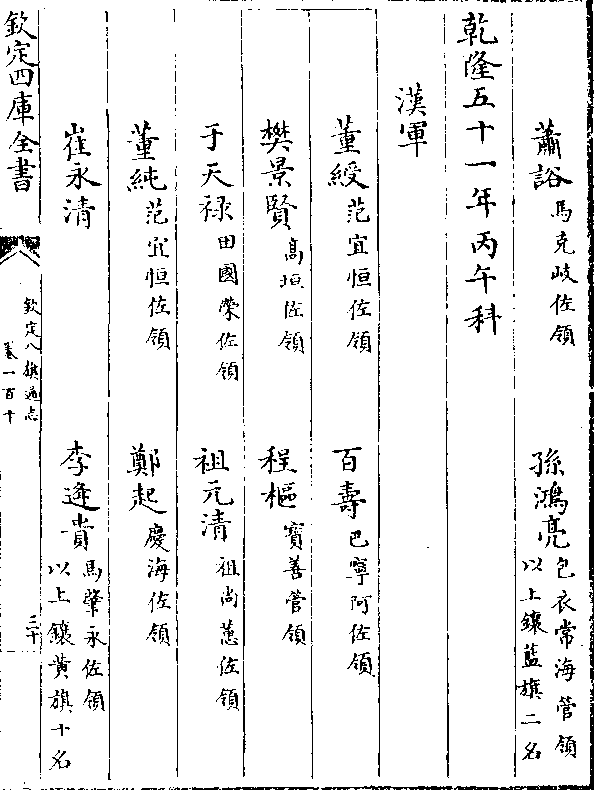 蕭谽馬克岐佐領　孫鴻亮包衣常海管領以上鑲藍旗二名
乾隆五十一年丙午科
漢軍
董綬范宜恒佐領　百壽巴寧阿佐領
樊景賢高垣佐領　程樞寳善管領
于天禄田國榮佐領　祖元清祖尚蕙佐領
董純范宜恒佐領　鄭起慶海佐領
崔永清　李逢貴馬肇永佐領以上鑲黄旗十名
欽定四庫全書
欽定八旗通志
卷一百十
三十